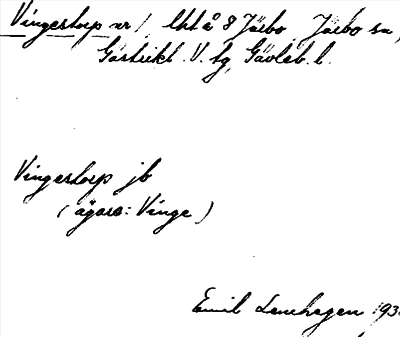 Vingestorp nr 1, lht å 8 Järbo, Järbo sn,
Gästrikl. V. tg, Gävleb. l.
Vingestorp jb
(ägare: Vinge)
Emil Lenehagen 193